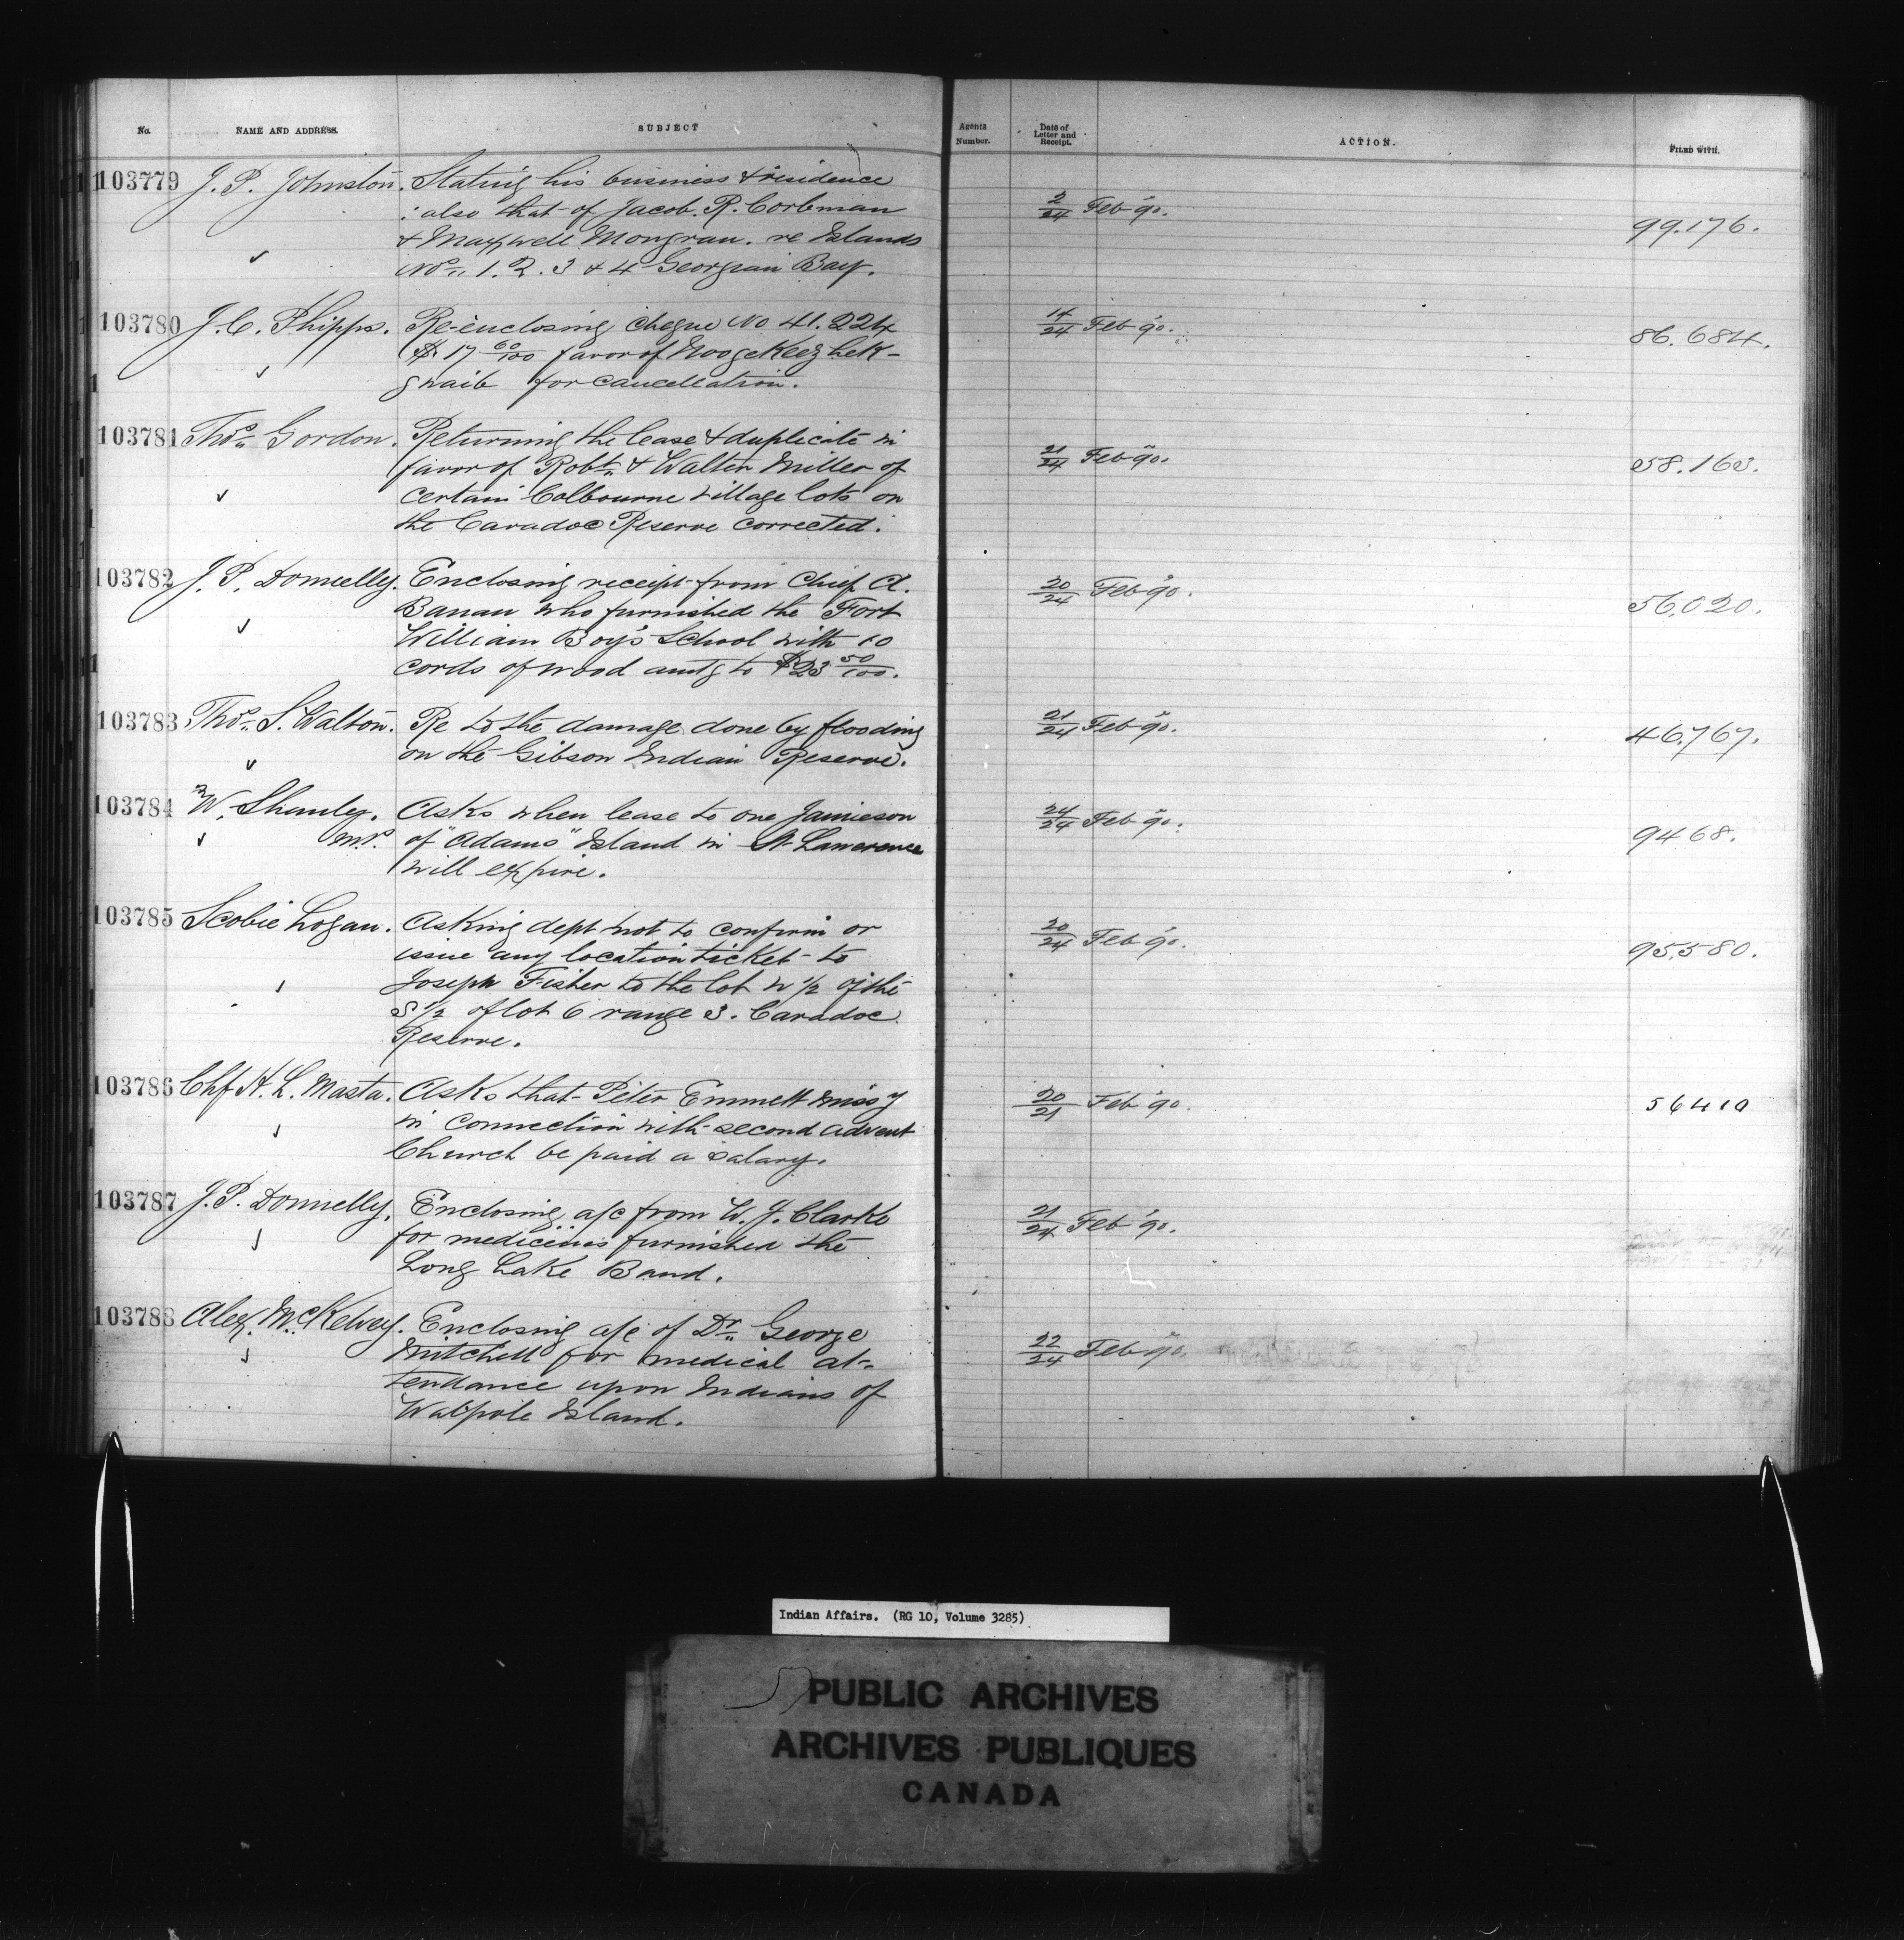 No. NAME AND ADDRESS. SUBJECT Agents Number. Date of Letter and Receipt. ACTION. FILED WITH.
103779 J. P. Johnston. Stating his business & residence
: also that of Jacob. R. Corbman 2/24 Feb '90. 99.176.
& Maxwell Mongrau. re Islands
Nos. 1. 2. 3 & 4 Georgian Bay.
103780 J. C. Phipps. Re-enclosing cheque No 41.224 14/24 Feb '90. 86.684.
($17 60/100 favor of NoogeKeezhek-
gwaib for cancellation.
103781 Thos. Gordon. Returning the lease & duplicate in
favor of Robt. & Walter Miller of 21/24 Feb '90. 58.163.
certain Colbourne village lots on
the Caradoc Reserve corrected.
103782 J. P. Donnelly. Enclosing receipt from Chief A. 20/24 Feb '90.
Banan who furnished the Fort 56,020.
William Boy's School with 10
cords of wood amtg to $23 50/100.
103783 Thos. S. Walton. Re to the damage done by flooding 21/24 Feb '90. 46,767.
on the Gibson Indian Reserve.
103784 W. Shanly. Asks when lease to one Jamieson 24/24 Feb '90.
M.P. of "Adams" Island in St Lawrence 9468.
will expire.
103785 Scobie Logan. Asking dept not to confirm or 20/24 Feb '90.
issue any location ticket to 95,580.
Joseph Fisher to the lot N 1/2 of the
S 1/2 of lot 6 range 3. Caradoc
Reserve.
103786 Chf H. L. Masta. Asks that Peter Emmett Missy 20/21 Feb '90. 56410
in connection with second advent
Church be paid a salary.
103787 J. P. Donnelly. Enclosing a/c from W. J. Clarke 21/24 Feb '90.
for medicines furnished the
Long Lake Band.
103788 Alex. McKelvey. Enclosing a/c of Dr. George
Mitchell for medical at- 22/24 Feb '90.
tendance upon Indians of
Walpole Island.
Indian Affairs. (RG 10, Volume 3285)
PUBLIC ARCHIVES
ARCHIVES PUBLIQUES
CANADA